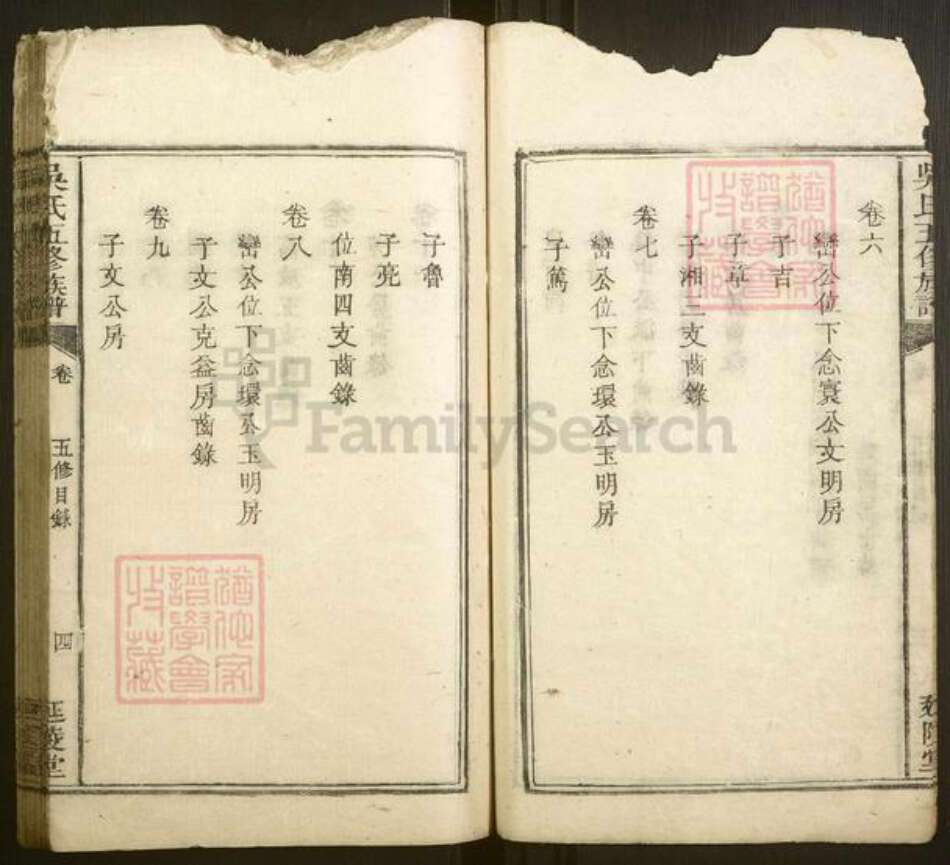 卷六
巒公位下念寰公文明房
子吉
子章
子湘三支齒錄
卷七
巒公位下念環公玉明房
子篤
子魯
子亮
位南四支齒錄
卷八
巒公位下念環公玉明房
子文公克益房齒錄
卷九
子文公房
吳氏五修族譜
卷
五修目錄
四
延陵堂
吳氏五修族譜
延陵堂
猶他家譜學會收藏
猶他家譜學會收藏
FamilySearch